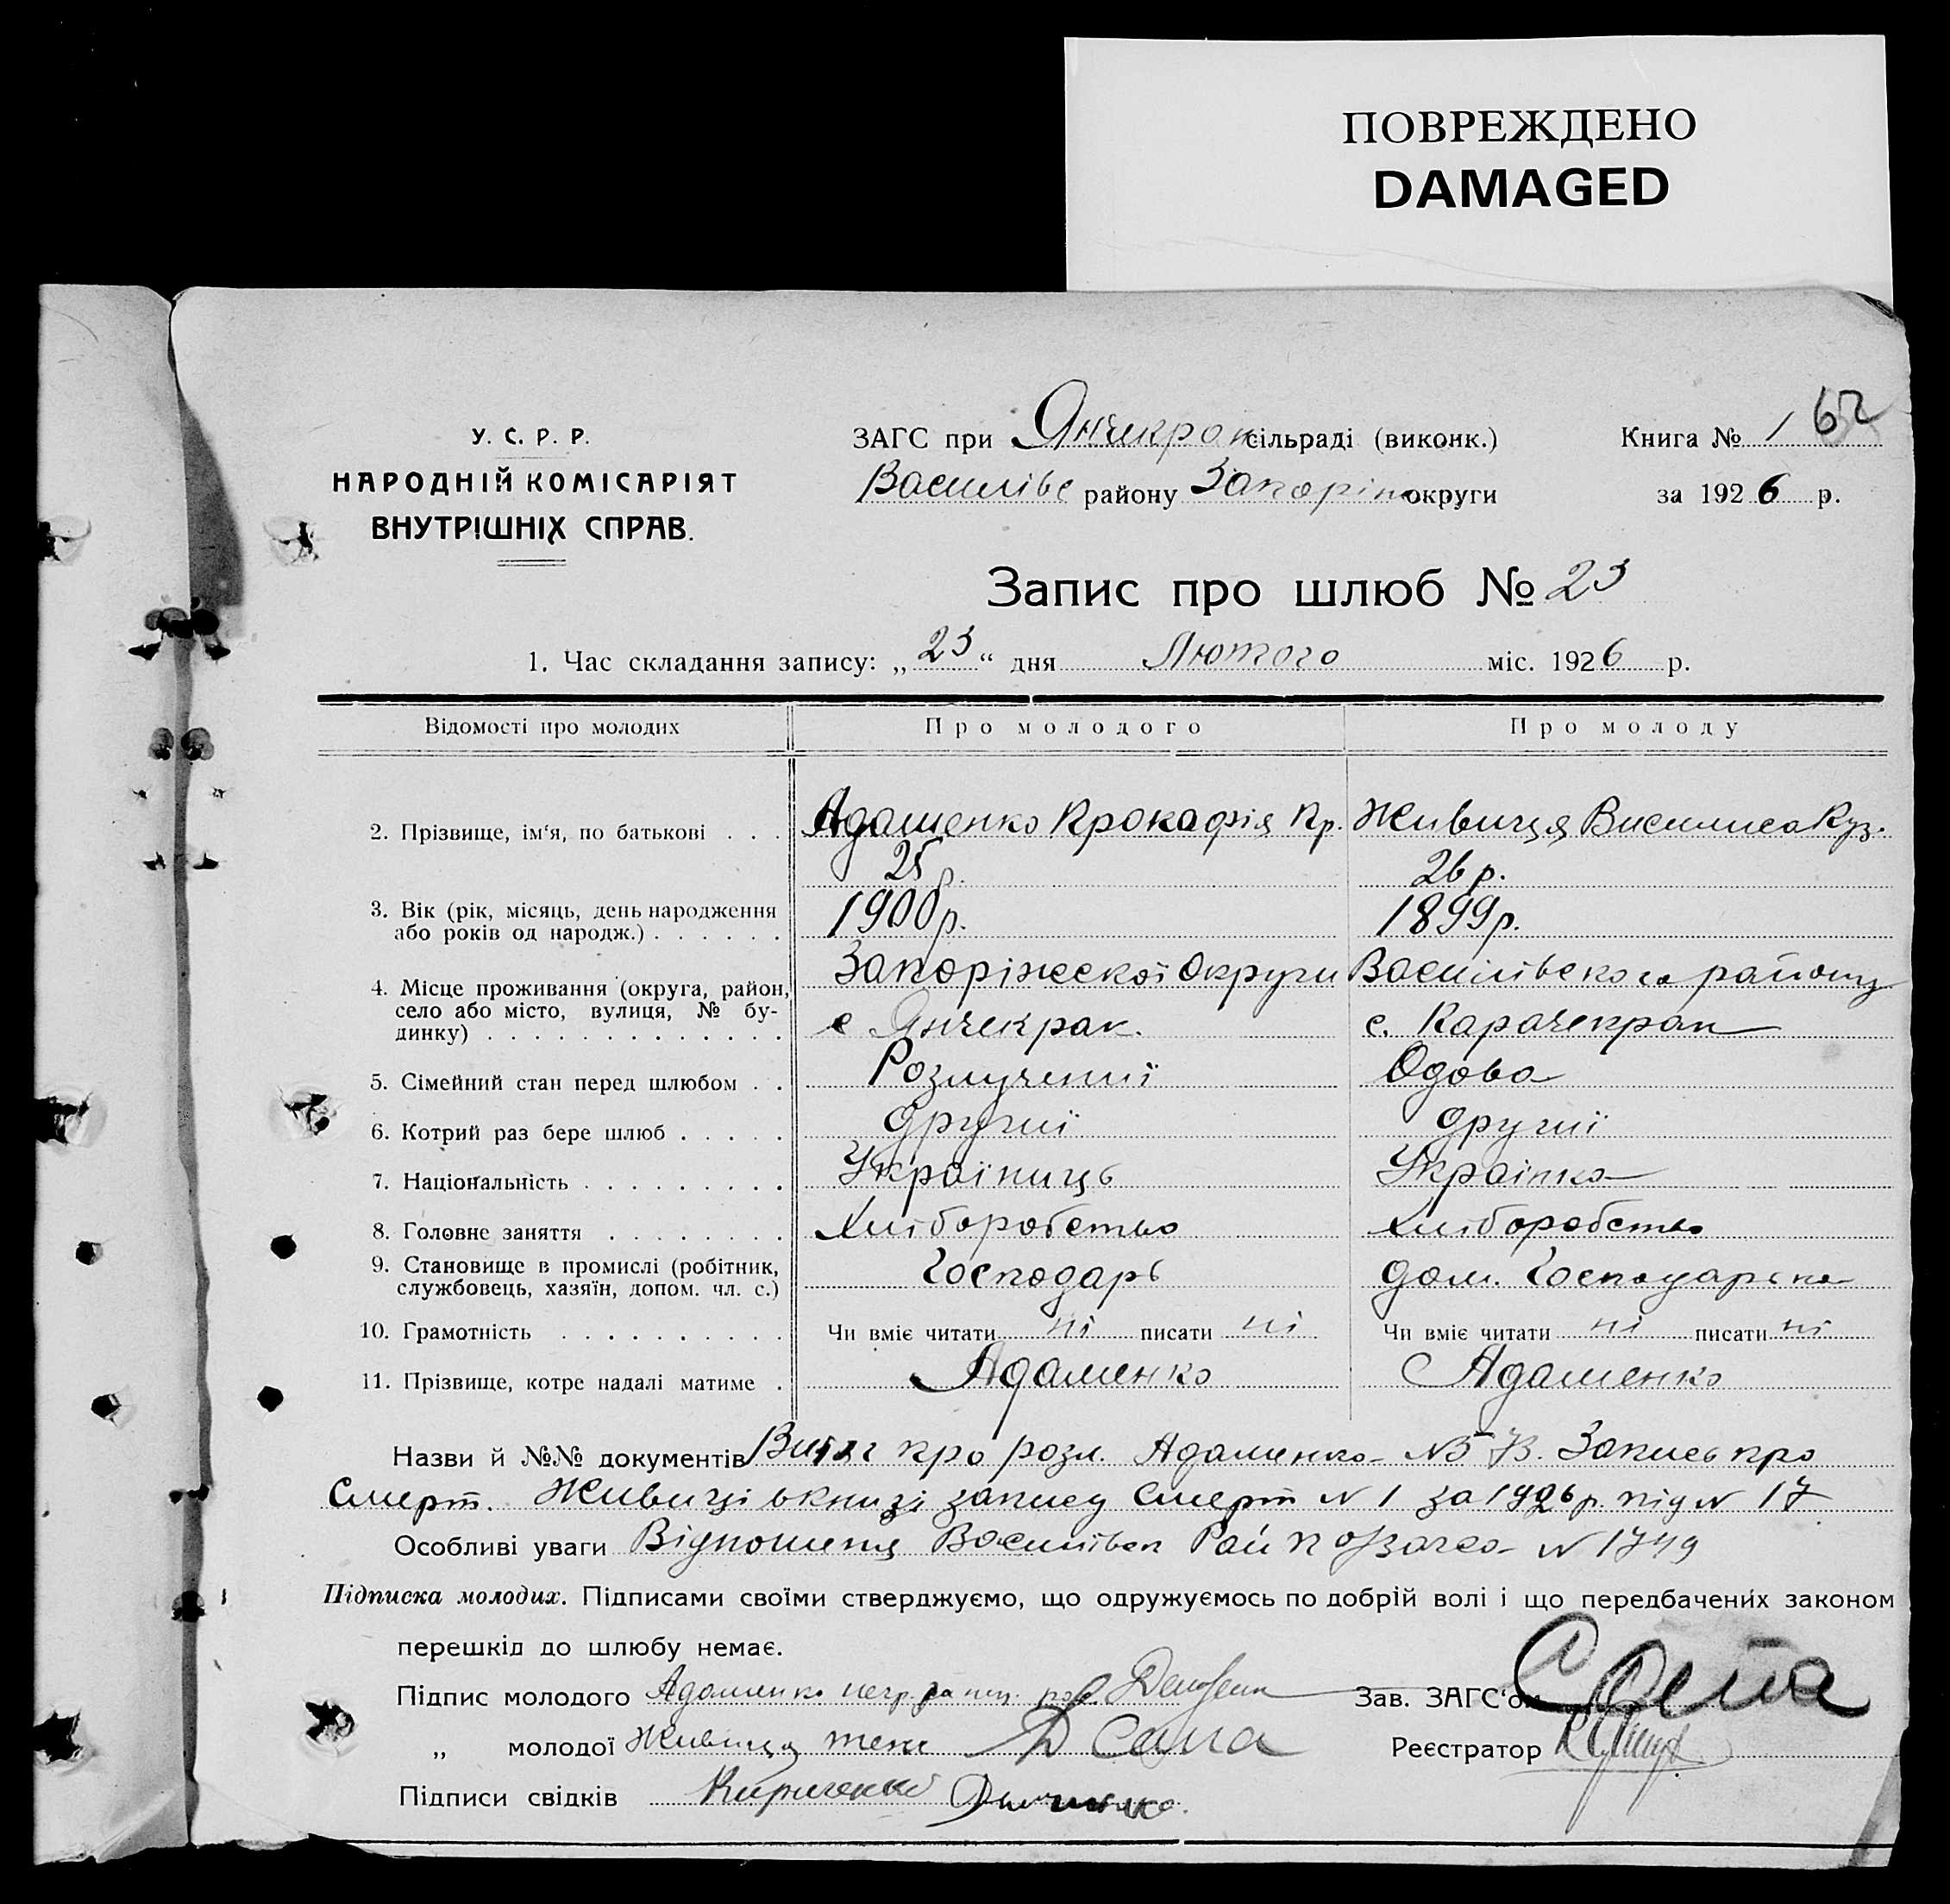 ПОВРЕЖДЕНО
DAMAGED
У. С. Р. Р.
НАРОДНІЙ КОМІСАРІЯТ
ВНУТРІШНІХ СПРАВ.
ЗАГС при Янчекрак сільраді (виконк.)
Василівс району Запоріж округи
Книга № 1 62
за 1926 р.
Запис про шлюб № 23
1. Час складання запису: „23“ дня Лютого міс. 1926 р.
Відомості про молодих Про молодого Про молоду
2. Прізвище, ім'я, по батькові . . . Адаменко Прокофія Пр. Живиця Василиса Куз.
25 р. 26 р.
3. Вік (рік, місяць, день народження
або років од народж.) . . . . . . 1900р. 1899р.
4. Місце проживання (округа, район,
село або місто, вулиця, № бу-
динку) . . . . . . . . . . . . .
Запоріжської Округи Василівского району
с Янчекрак. с. Карачекрак
5. Сімейний стан перед шлюбом . . Розлучений Одова
6. Котрий раз бере шлюб . . . . . другий другий
7. Національність . . . . . . . . . Україниць Украінка
8. Головне заняття . . . . . . . . Хліборобство Хліборобство
9. Становище в промислі (робітник,
службовець, хазяїн, допом. чл. с.) Господарь дом. Господарька
10. Грамотність . . . . . . . . . . Чи вміє читати ні писати ні Чи вміє читати ні писати ні
11. Прізвище, котре надалі матиме . Адаменко Адаменко
Назви й №№ документів Витяг про розл. Адаменка № Запись про
Смерт. Живиці вкнизі запису Смерт N 1 за 1926 р. під N 17
Особливі уваги Відношеня Василівск Рай N 1749
Підписка молодих. Підписами своїми стверджуємо, що одружуємось по добрій волі і що передбачених законом
перешкід до шлюбу немає.
Підпис молодого Адаменко Зав. ЗАГС'ом
„ молодої Живиця теж Реєстратор
Підписи свідків